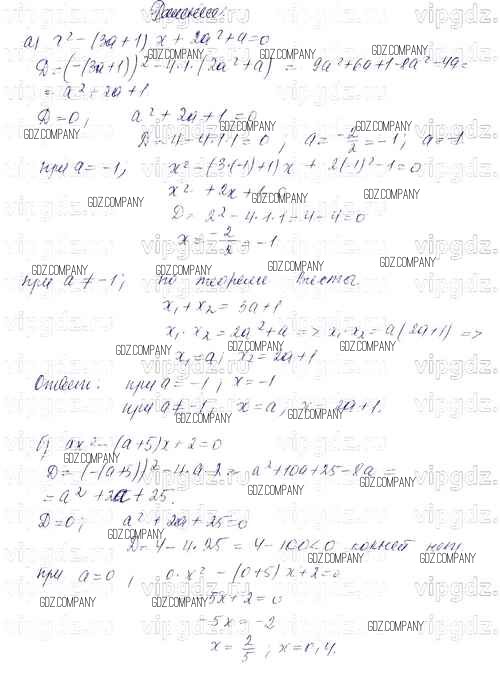 Решение:
а) x² - (3a+1)x + 2a² + a = 0
D = (-(3a+1))² - 4·1·(2a²+a) = 9a²+6a+1-8a²-4a =
= a² + 2a + 1
D = 0, a² + 2a + 1 = 0
D = 4 - 4·1·1 = 0, a = -2/2 = -1; a = -1
при a = -1, x² - (3·(-1)+1)x + 2(-1)² - 1 = 0
x² + 2x + 1 = 0
D = 2² - 4·1·1 = 4 - 4 = 0
x = -2/2 = -1
при a ≠ -1; по теореме Виета
x₁ + x₂ = 3a+1
x₁·x₂ = 2a²+a => x₁·x₂ = a(2a+1) =>
x₁ = a, x₂ = 2a+1
Ответ: при a = -1, x = -1
при a ≠ -1, x = a, x = 2a+1.
б) ax² - (a+5)x + 2 = 0
D = (-(a+5))² - 4·a·2 = a²+10a+25-8a =
= a² + 2a + 25.
D = 0; a² + 2a + 25 = 0
D = 4 - 4·25 = 4 - 100 < 0 корней нет
при a = 0, 0·x² - (0+5)x + 2 = 0
-5x + 2 = 0
-5x = -2
x = 2/5; x = 0,4.
GDZ.COMPANY
vipgdz.ru